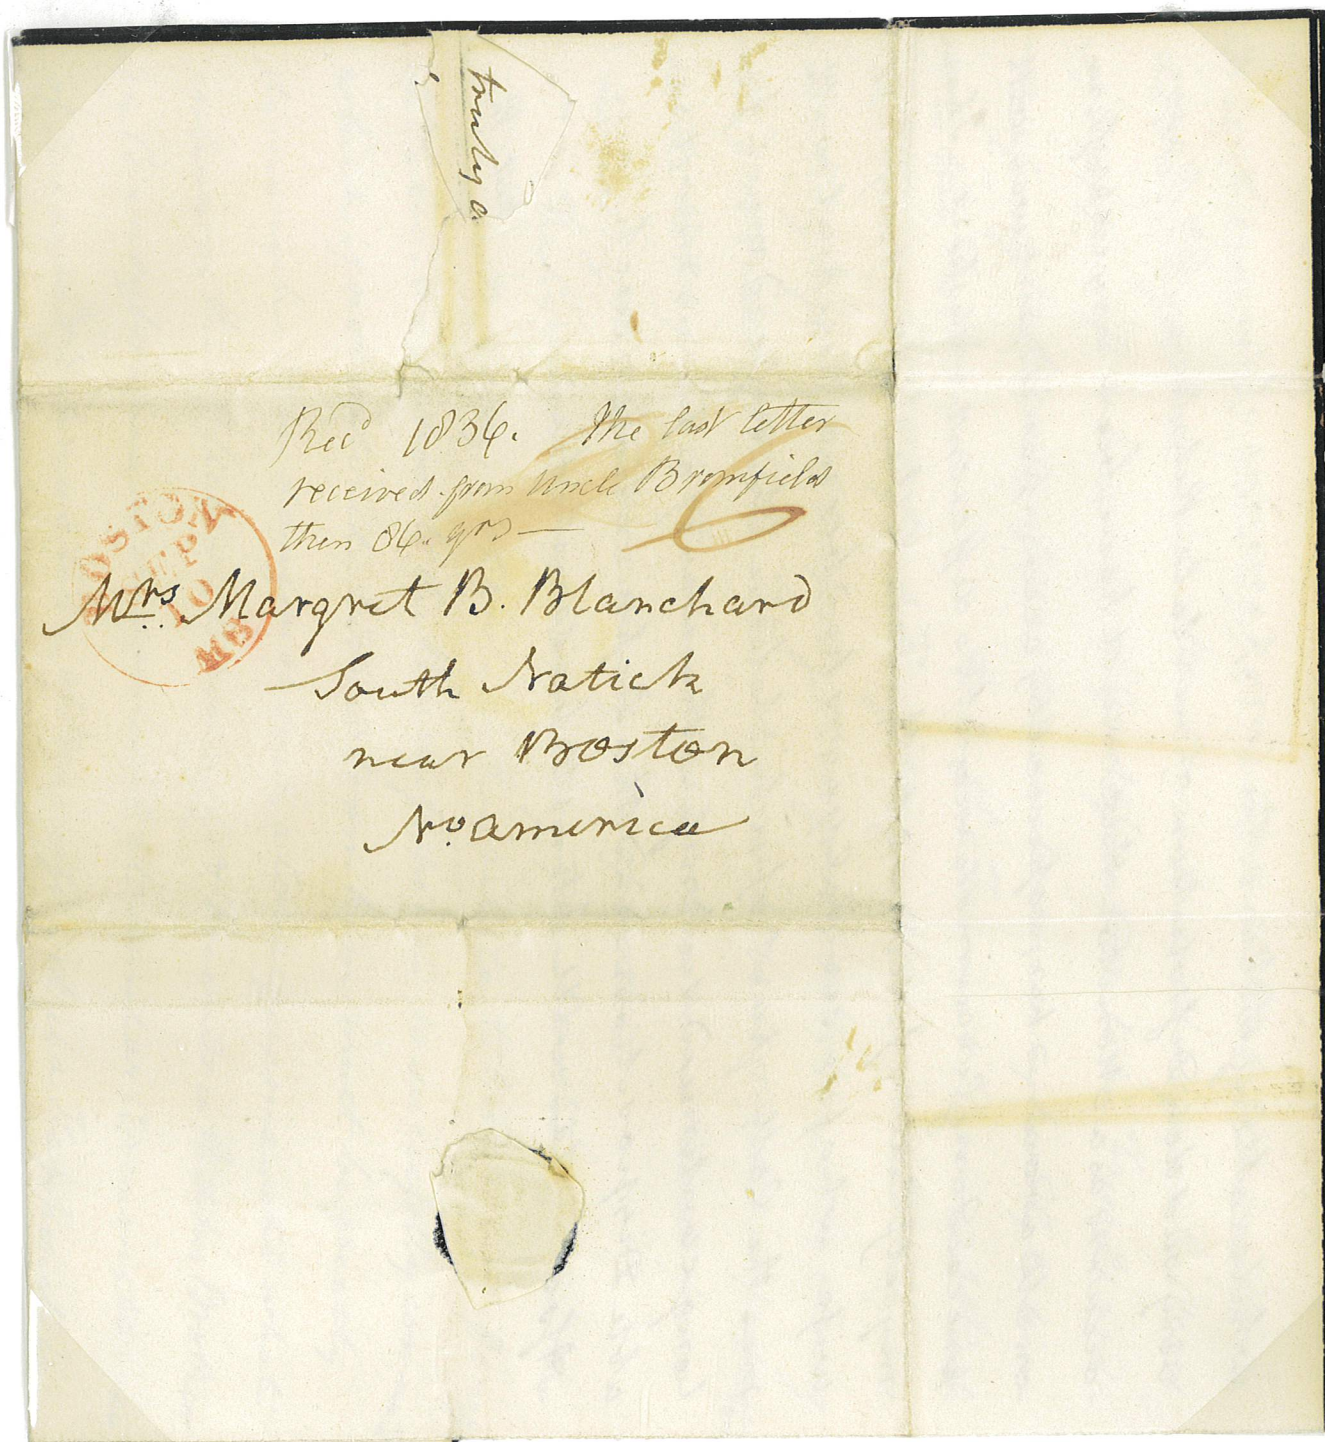 truly a
Recd 1836. The last letter
received from Uncle Bromfield
then 86. yrs —
6
BOSTON
SEP
10
MS
Mrs. Margret B. Blanchard
South Natick
near Boston
No. America